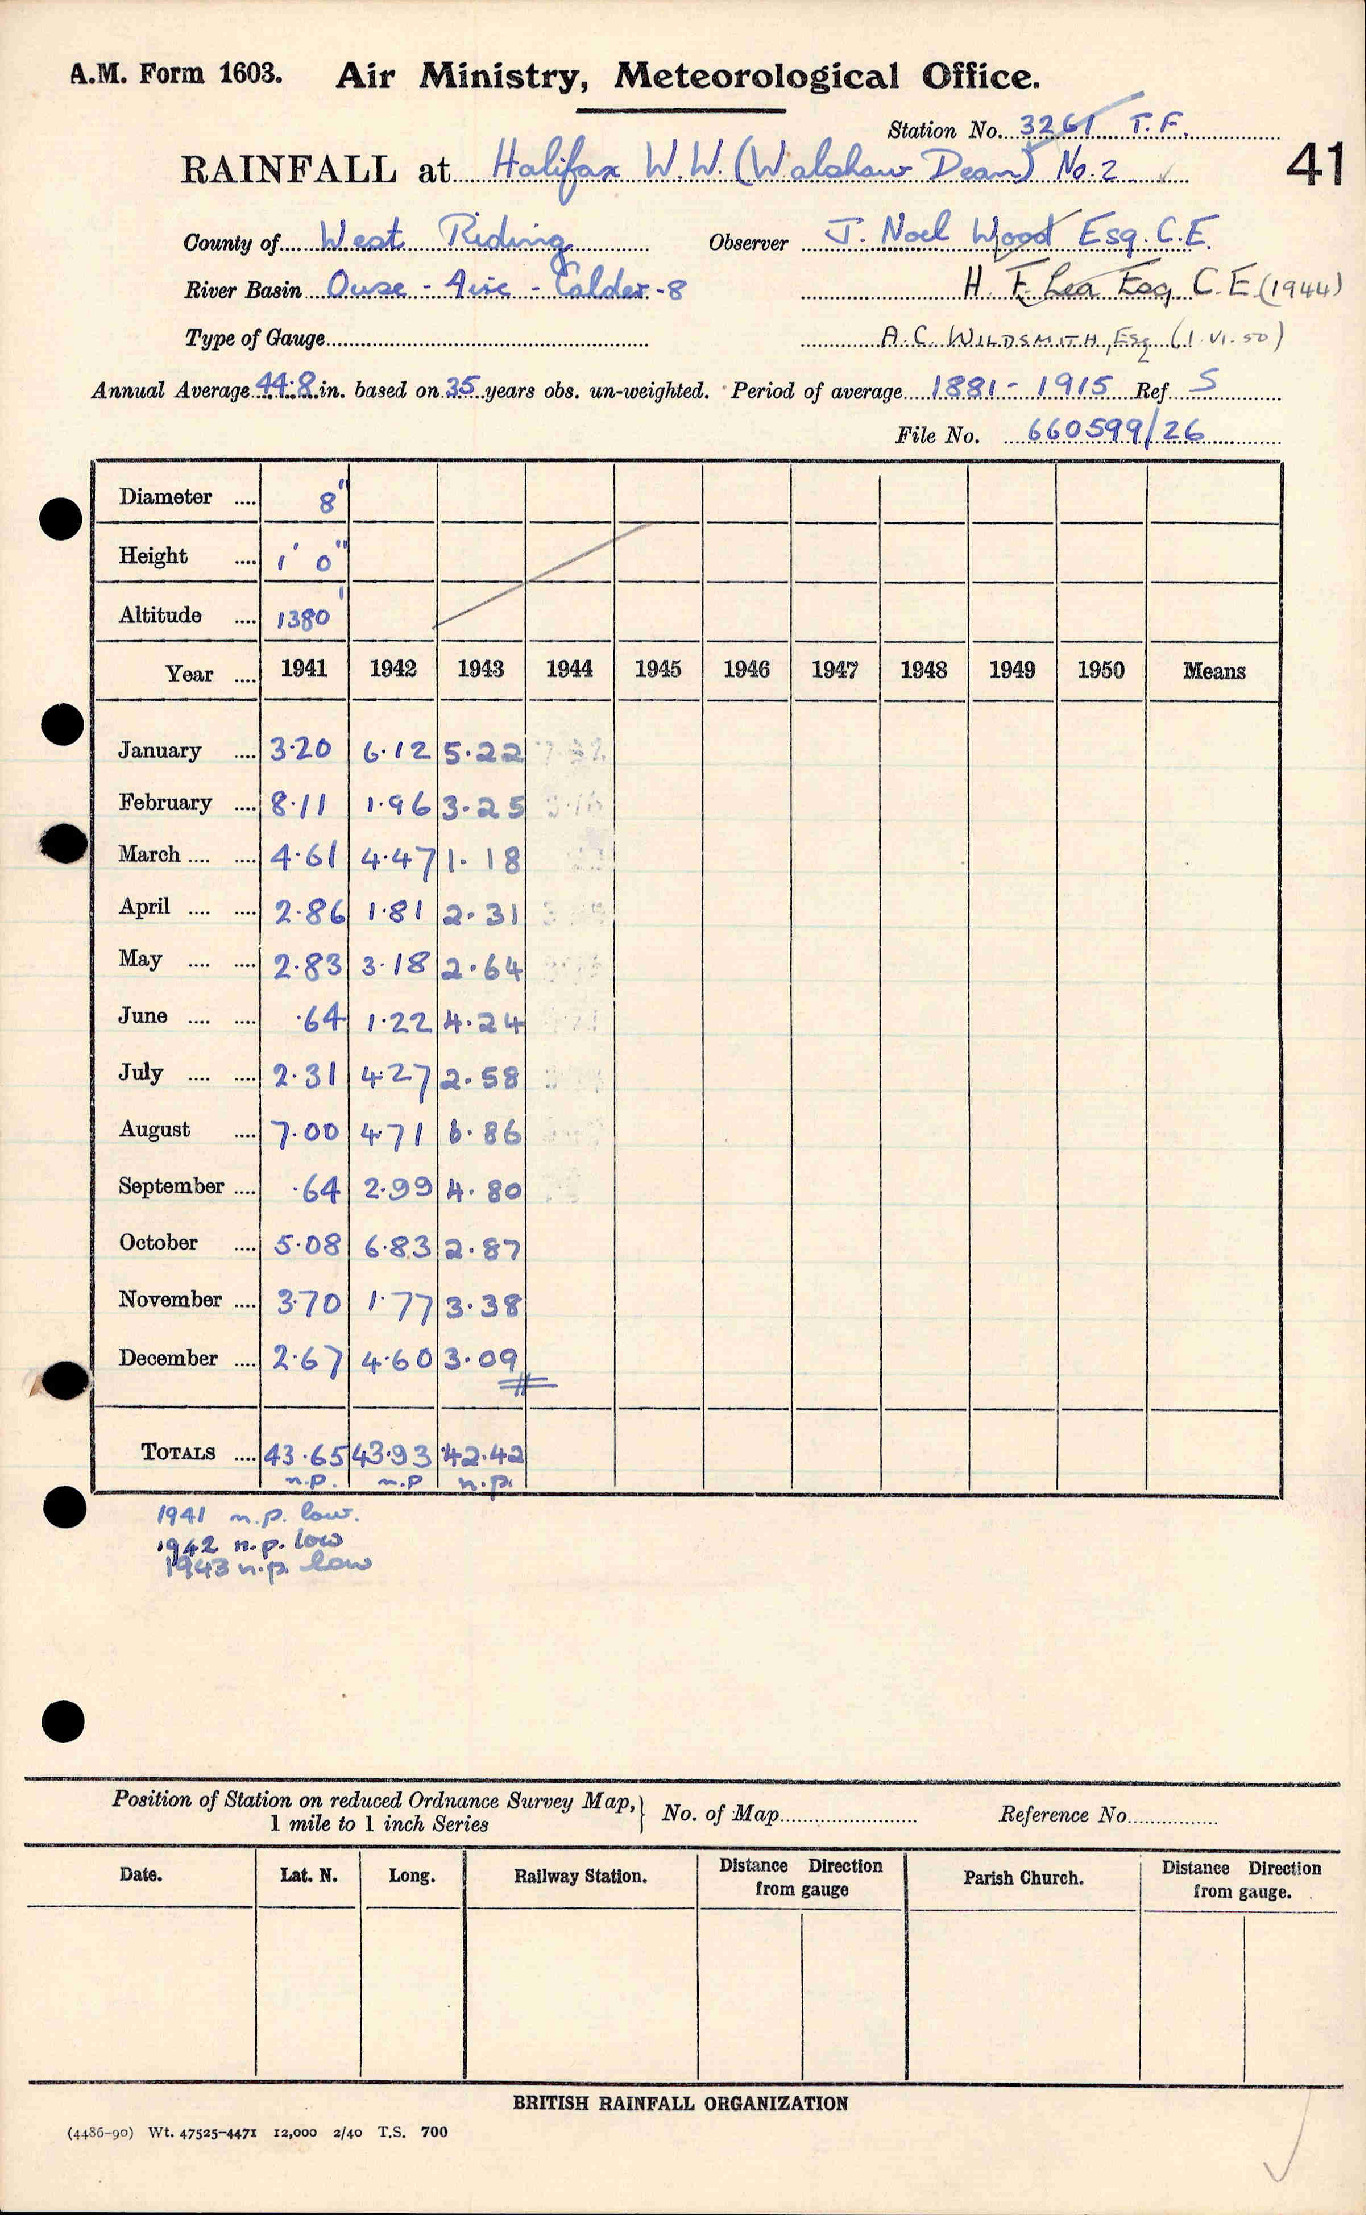 A.M. Form 1603. Air Ministry, Meteorological Office.
Station No. 3261 T.F.
RAINFALL at Halifax W.W. (Walshaw Dean) No. 2
41
County of West Riding Observer J. Noel Wood Esq. C.E.
River Basin Ouse - Aire - Calder - 8 H. F. Lea Esq. C.E. (1944)
Type of Gauge A.C. WILDSMITH, ESq (1.VI.50)
Annual Average 44.8 in. based on 35 years obs. un-weighted. Period of average 1881 - 1915 Ref S
File No. 660599/26
Diameter 8"
Height 1' 0"
Altitude 1380'
Year 1941 1942 1943 1944 1945 1946 1947 1948 1949 1950 Means
January 3.20 6.12 5.22
February 8.11 1.96 3.25
March 4.61 4.47 1.18
April 2.86 1.81 2.31
May 2.83 3.18 2.64
June .64 1.22 4.24
July 2.31 4.27 2.58
August 7.00 4.71 6.86
September .64 2.99 4.80
October 5.08 6.83 2.87
November 3.70 1.77 3.38
December 2.67 4.60 3.09
TOTALS 43.65 43.93 42.42
n.p. n.p n.p.
1941 n.p. low.
1942 n.p. low
1943 n.p. low
Position of Station on reduced Ordnance Survey Map, } No. of Map Reference No.
1 mile to 1 inch Series
Date. Lat. N. Long. Railway Station. Distance Direction from gauge Parish Church. Distance Direction from gauge.
BRITISH RAINFALL ORGANIZATION
(4486-90) Wt. 47525-4471 12,000 2/40 T.S. 700